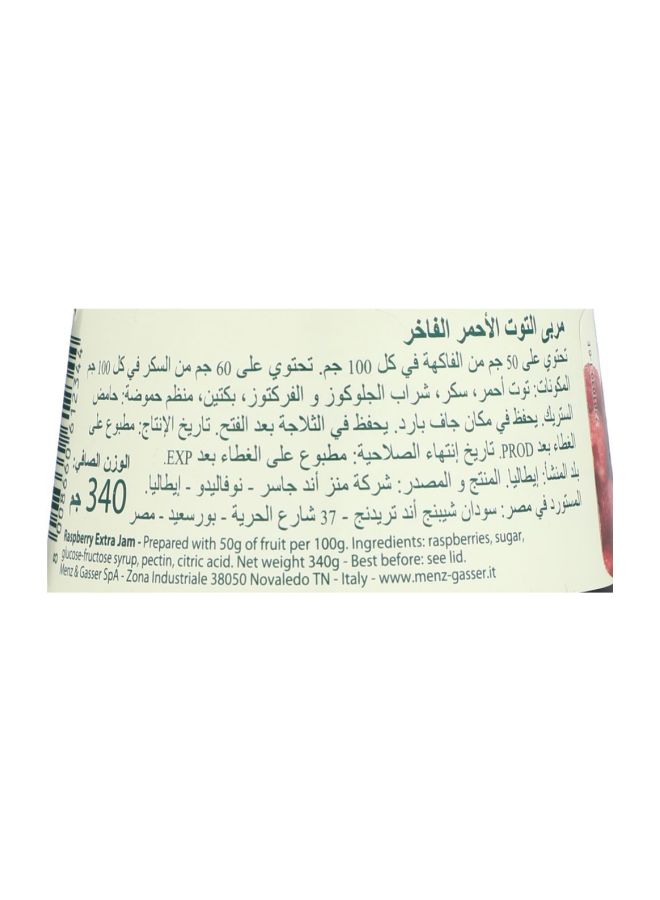 مربى التوت الأحمر الفاخر
تحتوي على 50 جم من الفاكهة في كل 100 جم. تحتوي على 60 جم من السكر في كل 100 جم
المكونات: توت أحمر، سكر، شراب الجلوكوز و الفركتوز، بكتين، منظم حموضة: حامض
الستريك. يحفظ في مكان جاف بارد. يحفظ في الثلاجة بعد الفتح. تاريخ الإنتاج: مطبوع على
الغطاء بعد PROD. تاريخ إنتهاء الصلاحية: مطبوع على الغطاء بعد EXP.
بلد المنشأ: إيطاليا. المنتج و المصدر: شركة منز أند جاسر - نوفاليدو - إيطاليا.
المستورد في مصر: سودان شيبنج أند تريدنج - 37 شارع الحرية - بورسعيد - مصر
الوزن الصافي:
340 جم
Raspberry Extra Jam - Prepared with 50g of fruit per 100g. Ingredients: raspberries, sugar,
glucose-fructose syrup, pectin, citric acid. Net weight 340g - Best before: see lid.
Menz & Gasser SpA - Zona Industriale 38050 Novaledo TN - Italy - www.menz-gasser.it